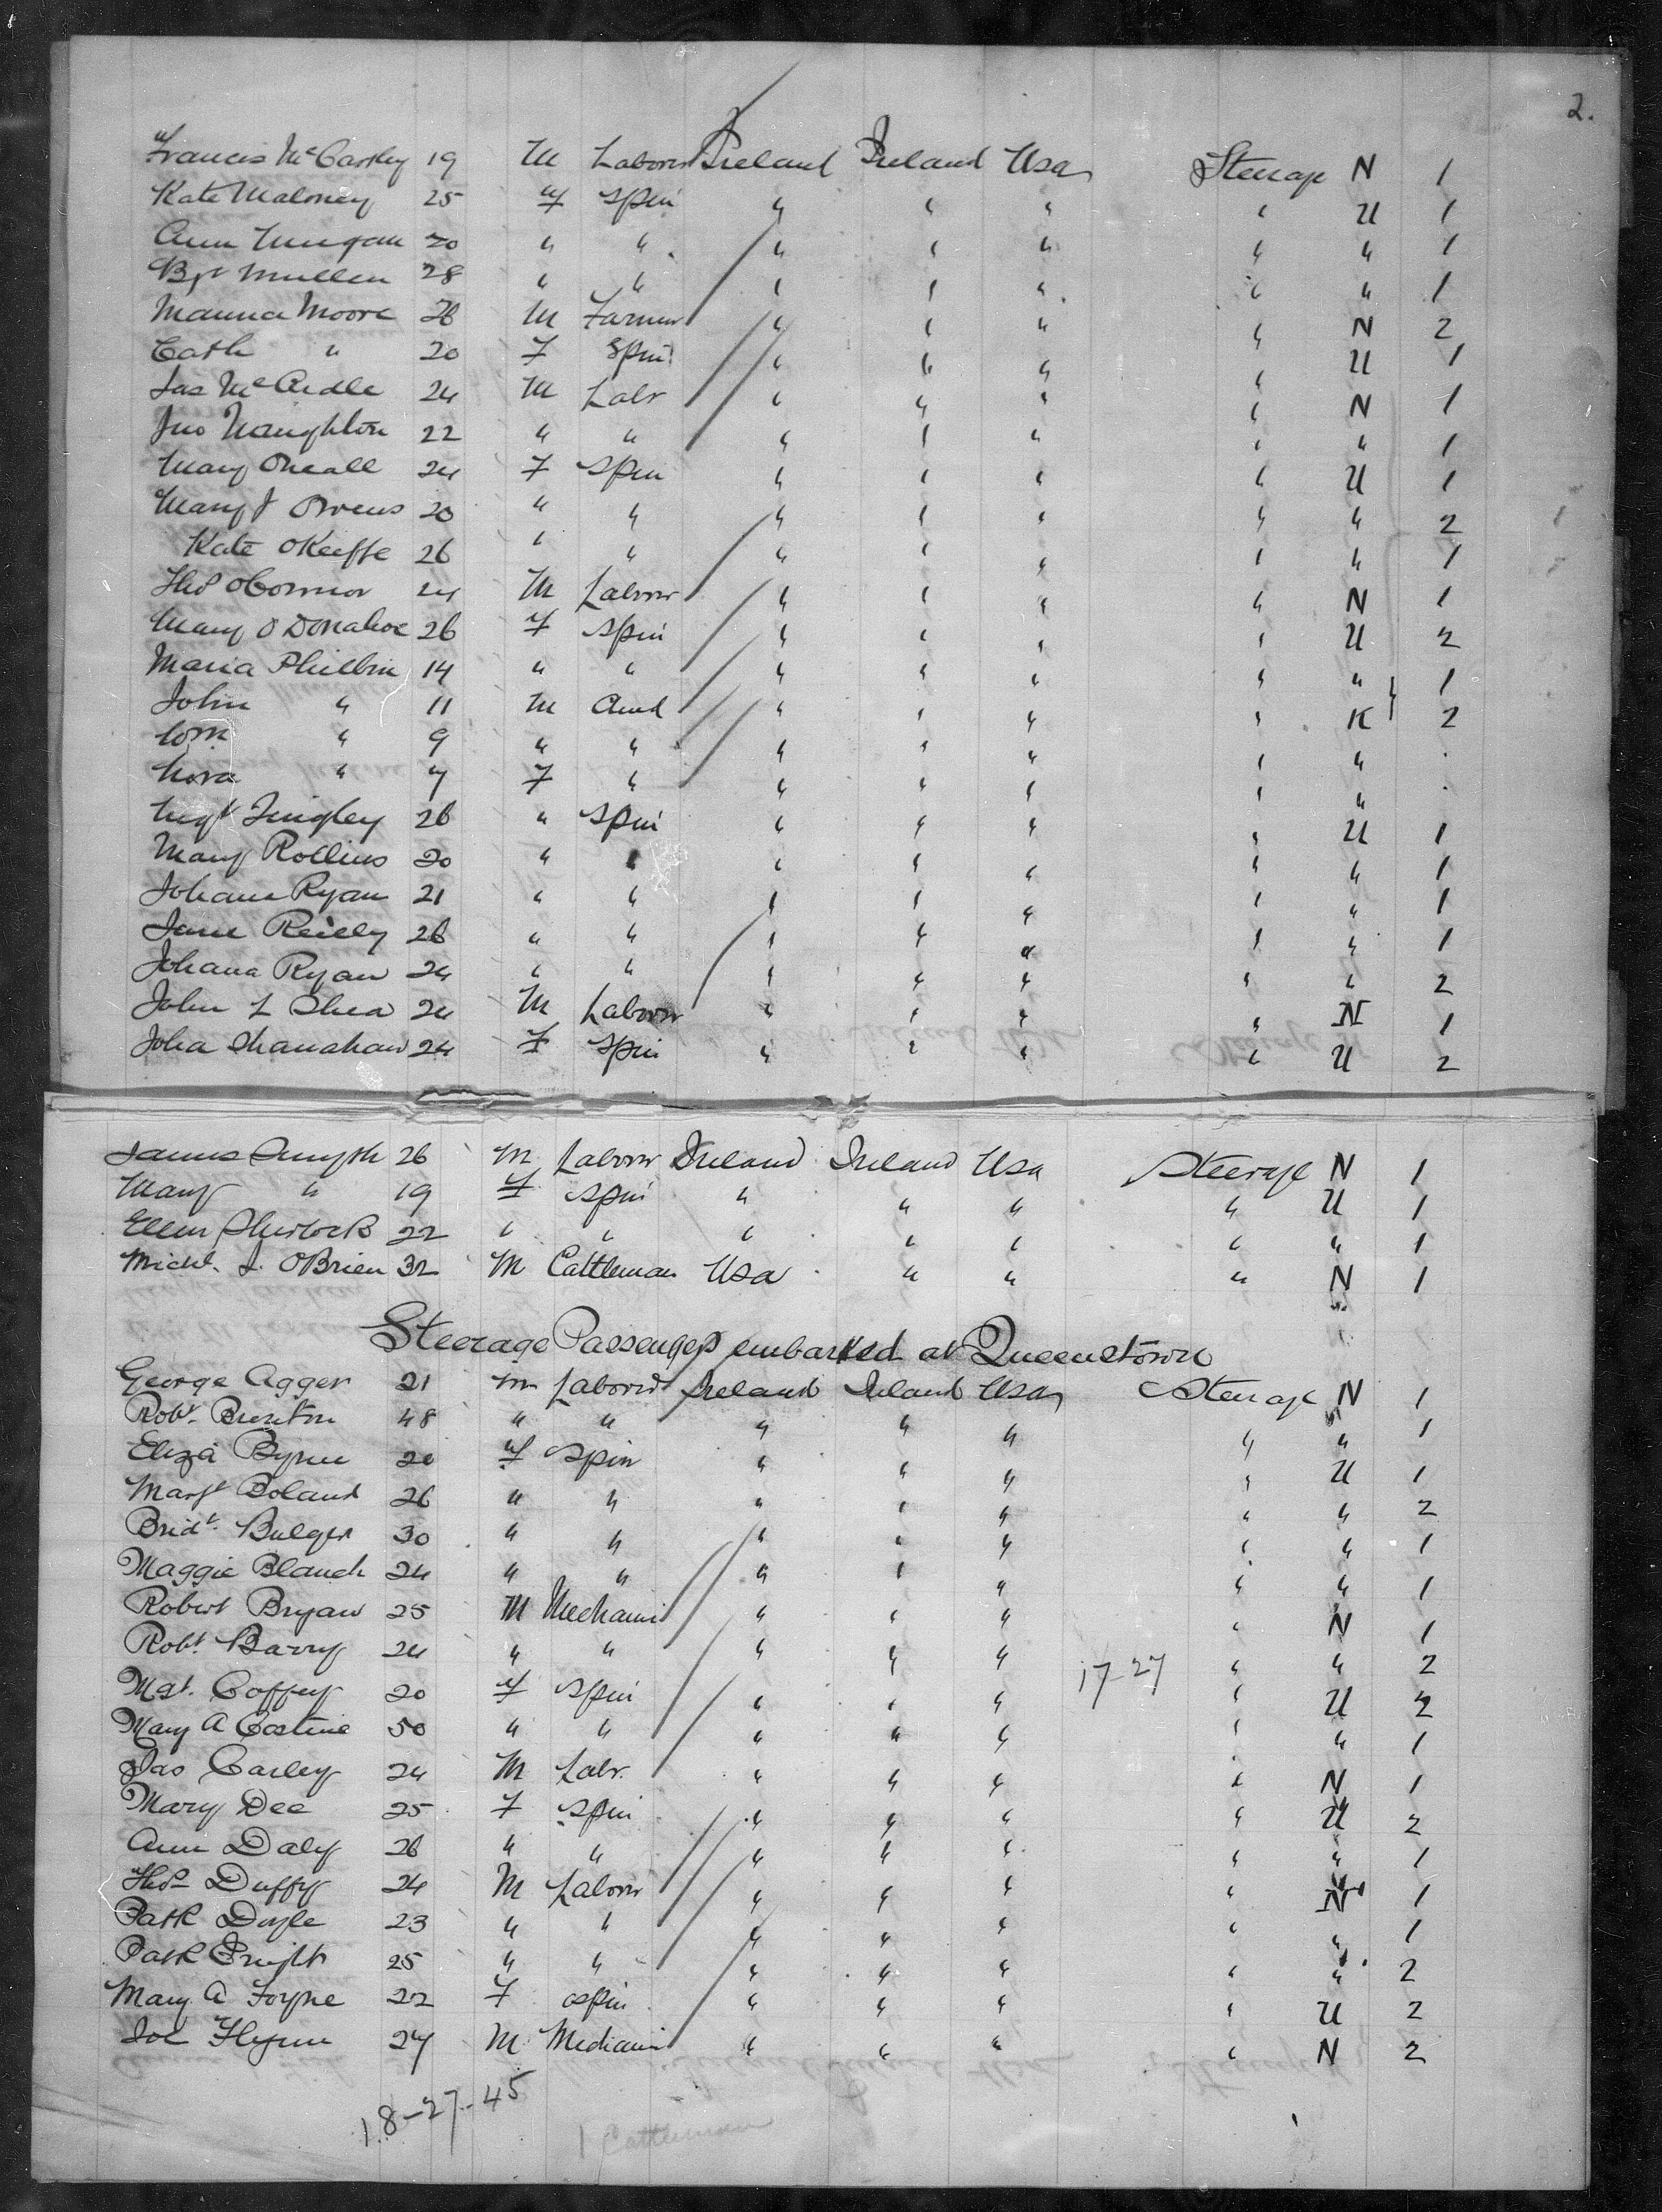 2.
Francis McCarthy 19 M Laborer Ireland Ireland Usa Steerage N 1
Kate Maloney 25 F Spin " " " " U 1
Ann 20 " " " " " " " 1
Bgt Mullen 28 " " " " " " " 1
Moore 26 M Farmer " " " " N 2
Cath " 20 F Spin " " " " U 1
Jas McArdle 24 M Labr " " " " N 1
Jno Naughton 22 " " " " " " " 1
Mary Oneall 24 F Spin " " " " U 1
Mary J Owens 20 " " " " " " " 2
Kate OKeiffe 26 " " " " " " " 1
Thos OConnor 24 M Laborer " " " " N 1
Mary O Donahoe 26 F Spin " " " " U 2
Maria Philbin 14 " " " " " " " 1
John " 11 M " " " " K 2
Wm " 9 " " " " " " "
Nora " 7 F " " " " " "
Mgt Tingley 26 " Spin " " " " U 1
Mary Rollins 20 " " " " " " " 1
Johana Ryan 21 " " " " " " " 1
Jane Reilly 26 " " " " " " " 1
Johana Ryan 24 " " " " " " " 2
John L Shea 24 M Laborer " " " " N 1
Joha Shanahan 24 F Spin " " " " U 2
James Smyth 26 M Laborer Ireland Ireland Usa Steerage N 1
Mary " 19 F Spin " " " " U 1
Ellen Sherlock 22 " " " " " " " 1
Michl. J. OBrien 32 M Cattleman Usa " " " N 1
Steerage Passengers embarked at Queenstown
George Agger 21 M Laborer Ireland Ireland Usa Steerage N 1
Robt. Brenton 48 " " " " " " " 1
Eliza Byrne 20 F Spin " " " " U 1
Margt Boland 26 " " " " " " " 2
Bridt. Bulger 30 " " " " " " " 1
Maggie Blanch 24 " " " " " " " 1
Robert Bryan 25 M Mechanic " " " " N 1
Robt. Barry 24 " " " " " 17-27 " " 2
Mgt. Coffey 20 F Spin " " " " U 2
Mary A Costine 50 " " " " " " " 1
Jas Carley 24 M Labr. " " " " N 1
Mary Dee 25 F Spin " " " " U 2
Ann Daly 26 " " " " " " " 1
Thos Duffy 24 M Laborer " " " " N 1
Patk Doyle 23 " " " " " " " 1
Patk Enright 25 " " " " " " " 2
Mary A Foyne 22 F Spin " " " " U 2
Joe Flynn 24 M Mechanic " " " " N 2
18-27-45
1 Cattleman